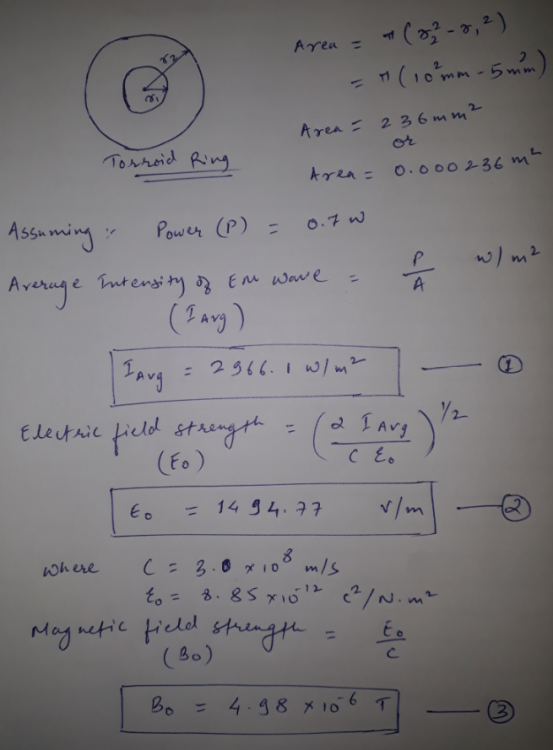 r₂
r₁
Torroid Ring
Area = π(r₂² - r₁²)
= π(10²mm - 5²mm)
Area = 236 mm²
or
Area = 0.000236 m²
Assuming :- Power (P) = 0.7 W
Average Intensity of EM wave = P/A W/m²
(I Avg)
I Avg = 2966.1 W/m² ①
Electric field strength = (2 I Avg / C ε₀)^1/2
(E₀)
E₀ = 1494.77 V/m ②
where C = 3.0 × 10⁸ m/s
ε₀ = 8.85 × 10⁻¹² C²/N·m²
Magnetic field strength = E₀/C
(B₀)
B₀ = 4.98 × 10⁻⁶ T ③